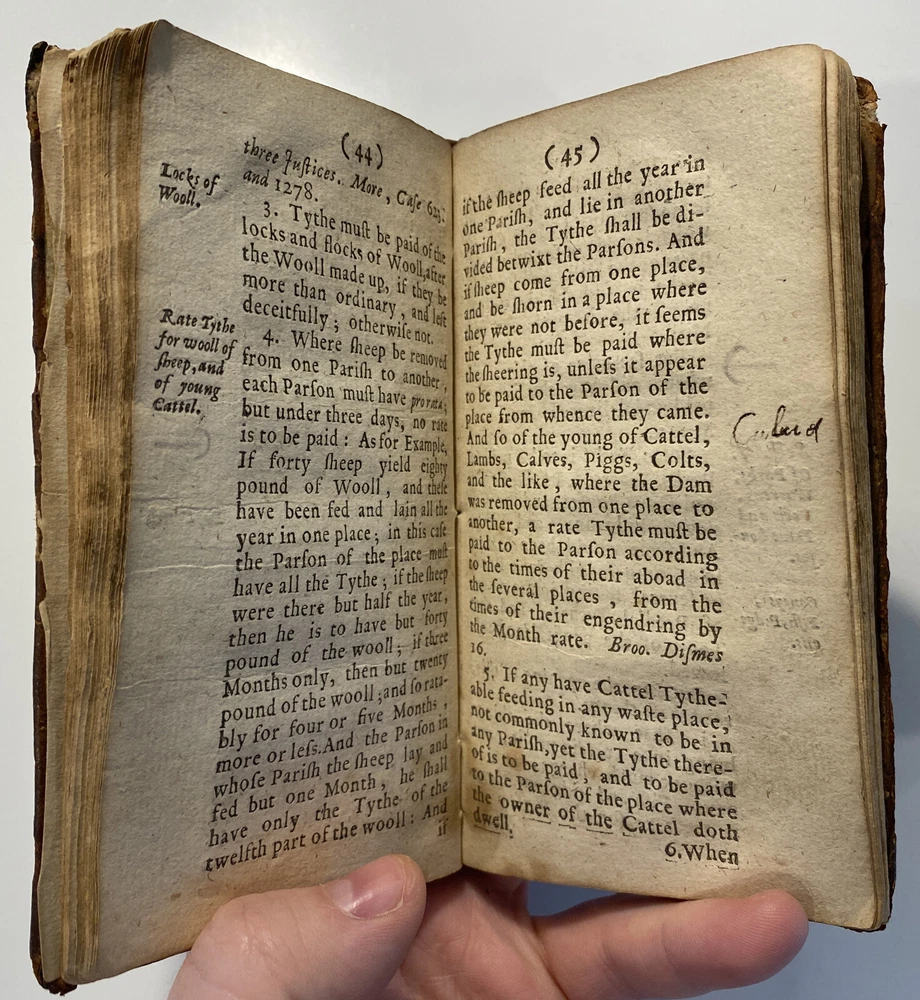 (44)
three Juſtices. More, Caſe 623.
and 1278.
Locks of
Wooll.
3. Tythe muſt be paid of the
locks and flocks of Wooll, after
the Wooll made up, if they be
more than ordinary, and left
deceitfully; otherwiſe not.
Rate Tythe
for wooll of
ſheep, and
of young
Cattel.
4. Where ſheep be removed
from one Pariſh to another,
each Parſon muſt have pro rata;
but under three days, no rate
is to be paid: As for Example,
If forty ſheep yield eighty
pound of Wooll, and theſe
have been fed and lain all the
year in one place; in this caſe
the Parſon of the place muſt
have all the Tythe; if the ſheep
were there but half the year,
then he is to have but forty
pound of the wooll; if three
Months only, then but twenty
pound of the wooll; and ſo rata-
bly for four or five Months,
more or leſs. And the Parſon in
whoſe Pariſh the ſheep lay and
fed but one Month, he ſhall
have only the Tythe of the
twelfth part of the wooll: And
if
(45)
if the ſheep feed all the year in
one Pariſh, and lie in another
Pariſh, the Tythe ſhall be di-
vided betwixt the Parſons. And
if ſheep come from one place,
and be ſhorn in a place where
they were not before, it ſeems
the Tythe muſt be paid where
the ſheering is, unleſs it appear
to be paid to the Parſon of the
place from whence they came.
And ſo of the young of Cattel,
Lambs, Calves, Piggs, Colts,
and the like, where the Dam
was removed from one place to
another, a rate Tythe muſt be
paid to the Parſon according
to the times of their aboad in
the ſeveral places, from the
times of their engendring by
the Month rate. Broo. Diſmes
16.
5. If any have Cattel Tythe-
able feeding in any waſte place,
not commonly known to be in
any Pariſh, yet the Tythe there-
of is to be paid, and to be paid
to the Parſon of the place where
the owner of the Cattel doth
dwell.
6. When